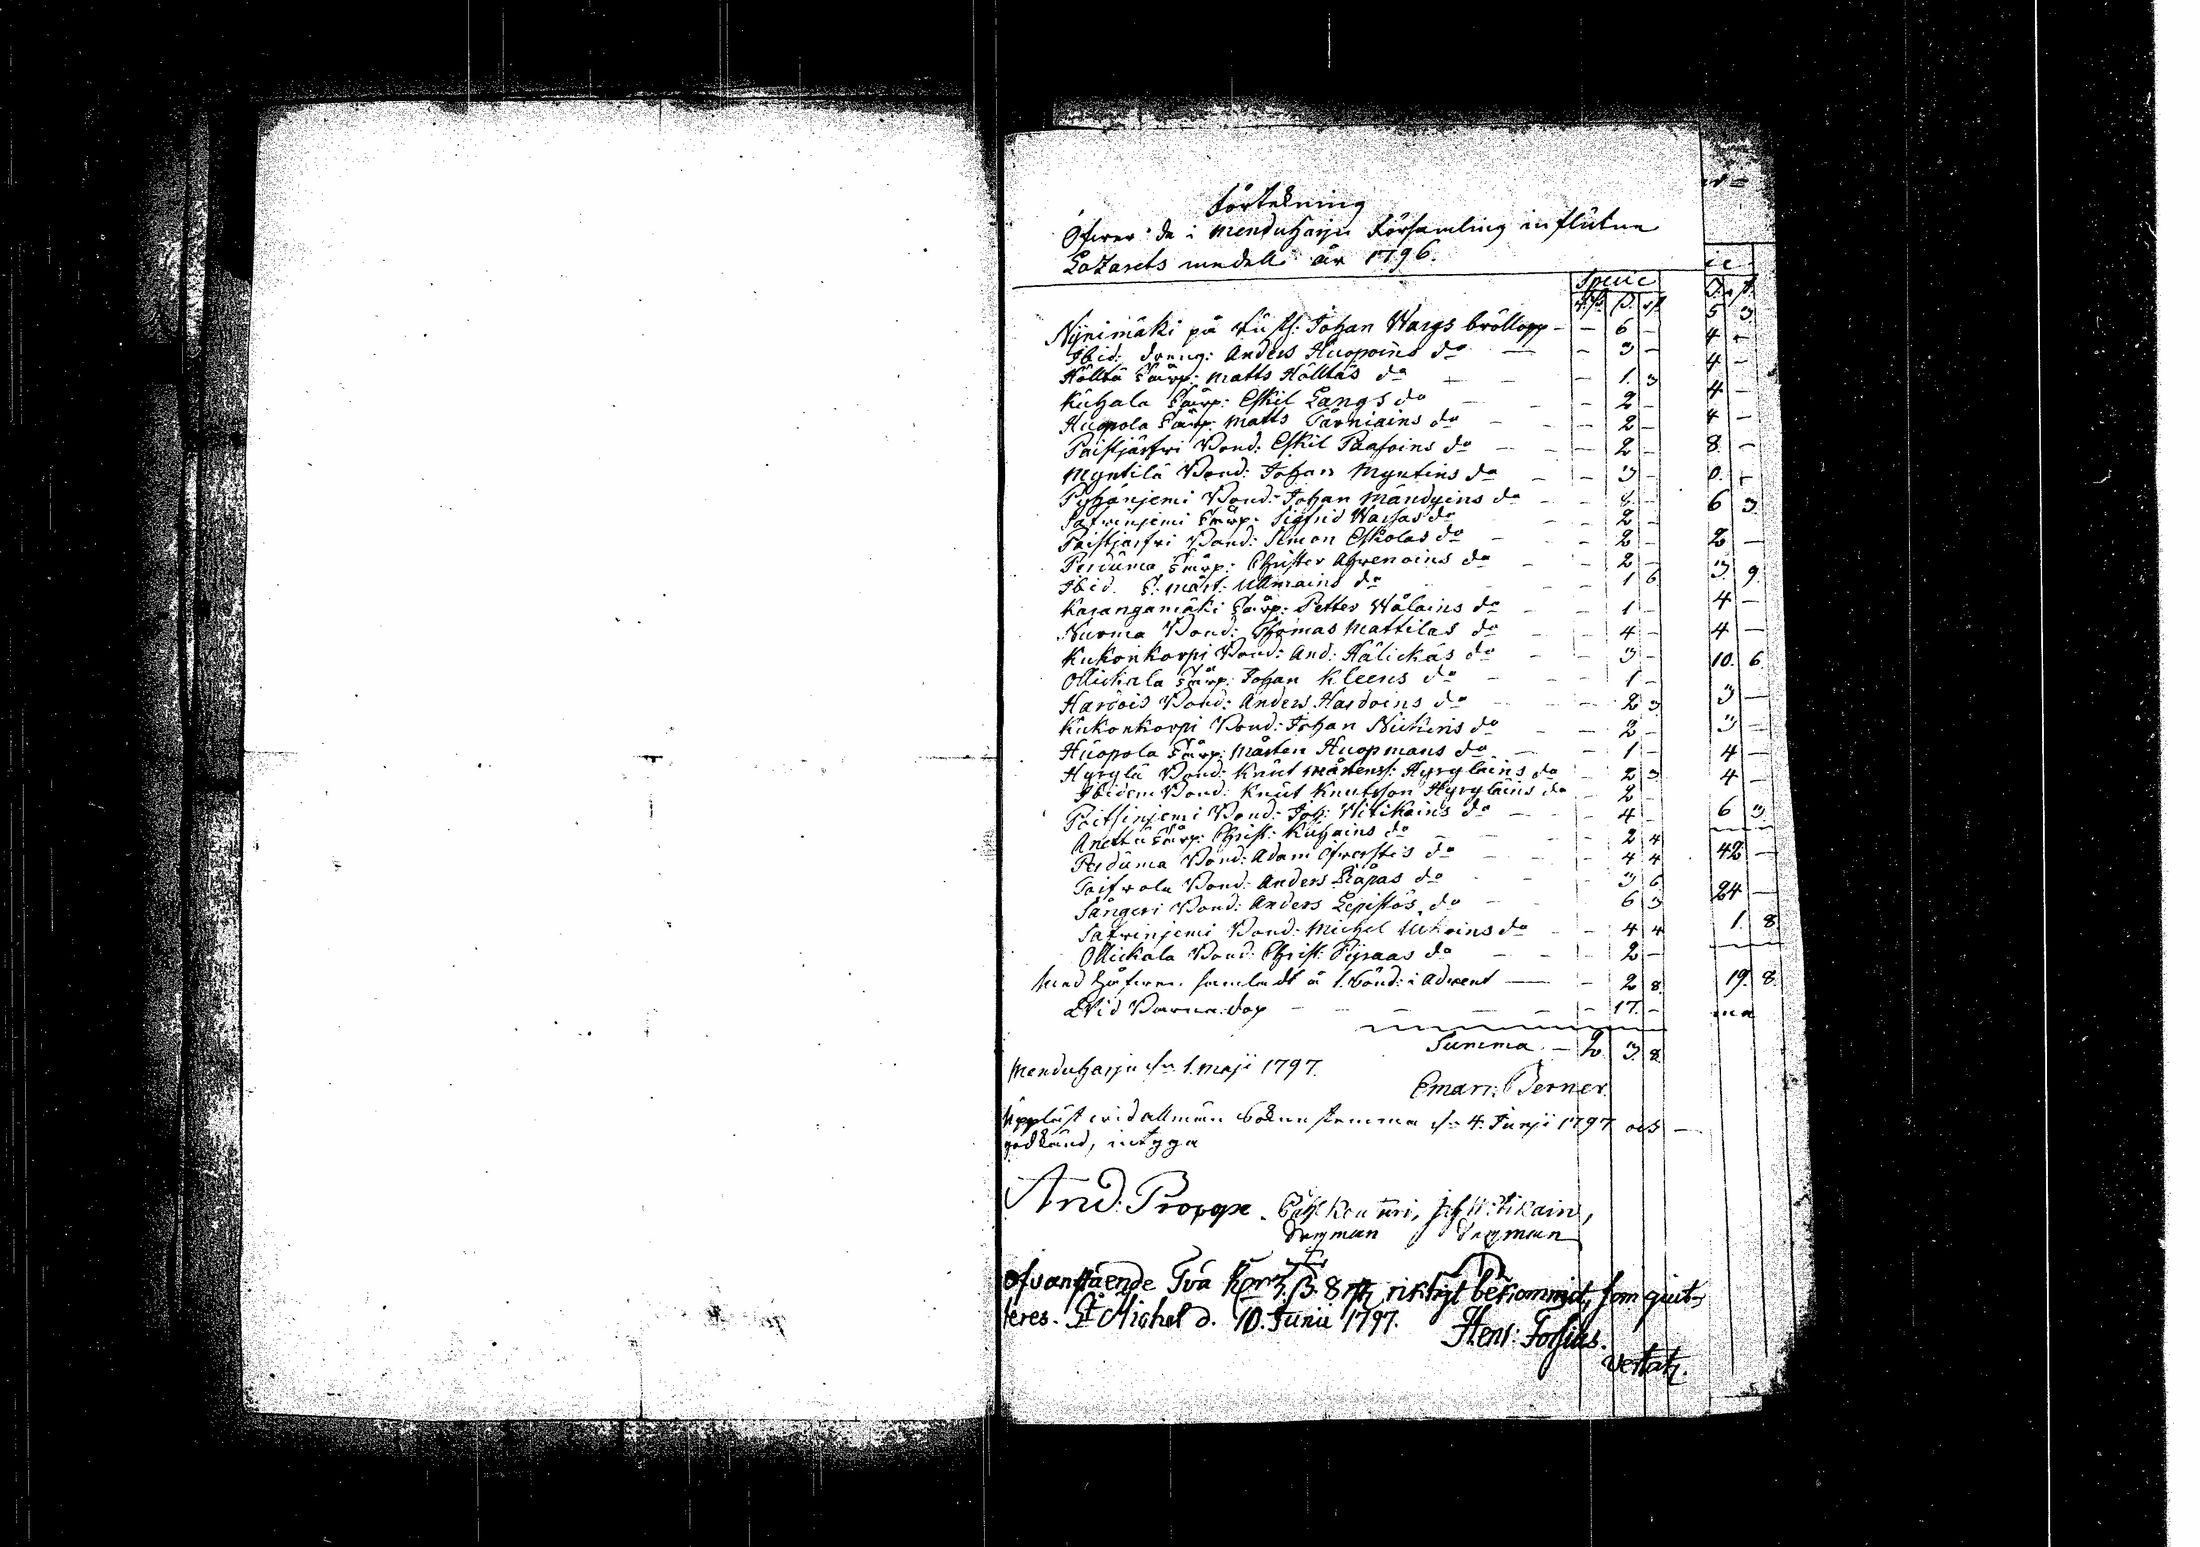 Förtekning
Öfwer de i Menduharju Församling influtna
Lazarets medell år 1796.
Specie
R:sd. ß. rst.
Nijnimäki på Gusts: Johan Wargs bröllopp - - 6 -
Ibid: dreng: Anders Huopoins do - - 3 -
Hölltä Tårp: Matts Hölltäs do - - 1. 3
Kuhala Tårp: Eskil Langs do - - 2 -
Huopola Tårp: Matts Tärniäins do - - 2 -
Paistjärfwi Bond: Eskil Paasoins do - - 2 -
Myntilä Bond: Johan Myntins do - - 3 -
Pyhänjemi Bond: Johan Mändyins do - -
Satwenjemi Tårp: Sigfrid Wassas do - - 2 -
Paistjerfwi Bond: Simon Eskolas do - - 2 -
Perduma Tårp: Christer Ahwenains do - - 2 -
Ibid. Ullmains do - 1 6
Karangamäki Tårp: Petter Wälains do - - 1 -
Nurma Bond: Thomas Mattilas do - - 4 -
Kukonkorpi Bond: And: Hälickäs do - - 3 -
Ollickala Tårp: Johan Kleens do - - 1 -
Hardois Bond: Anders Hardoins do - - 2 3
Kukonkorpi Bond: Johan Nickins do - - 2 -
Huopola Tårp: Mårten Huopmans do - - 1 -
Hyrylä Bond: Knut Mårtenss: Hyryläins do - 2 3
Ibidem Bond: Knut Knutsson Hyryläins do - 2 -
Paitsinjemi Bond: Joh: Witikains do - - 4 -
Anettu Tårp: Christ: Kuhains do - - 2 4
Perduma Bond: Adam Öfwerstis do - - 4 4
Toifwola Bond: Anders Räpas do - - 3 6
Sångeri Bond: Anders Lepistös do - - 6 3
Satwenjemi Bond: Michel Ukoins do - - 4 4
Ollickala Bond: Christ: Pijraas do - - 2 -
Med håfwen samladt å 1. Sönd: i Advent - - 2 8.
Wid Barna dop - - 17. -
Summa - 2 3 8.
Menduharju d: 1. Maji 1797.
Eman: Berner.
Uppläst wid allmän Sokne stemma d: 4. Junji 1797 och
godkänd, intyga
And: Proppe. Joh: Witikain,
Sexman Sexman
Ofvanstående Två ß. 8 riktigt bekommit, som quit-
teres. St Michel d. 10. Junii 1797.
Hens: Forsius.
vertatz.
5 3
4 -
4 -
4 -
4 -
8. -
6 3
2 -
3 9
4 -
4 -
10. 6
3 -
3 -
4 -
4 -
6 3
42 -
24 -
1. 8
19. 8
ma